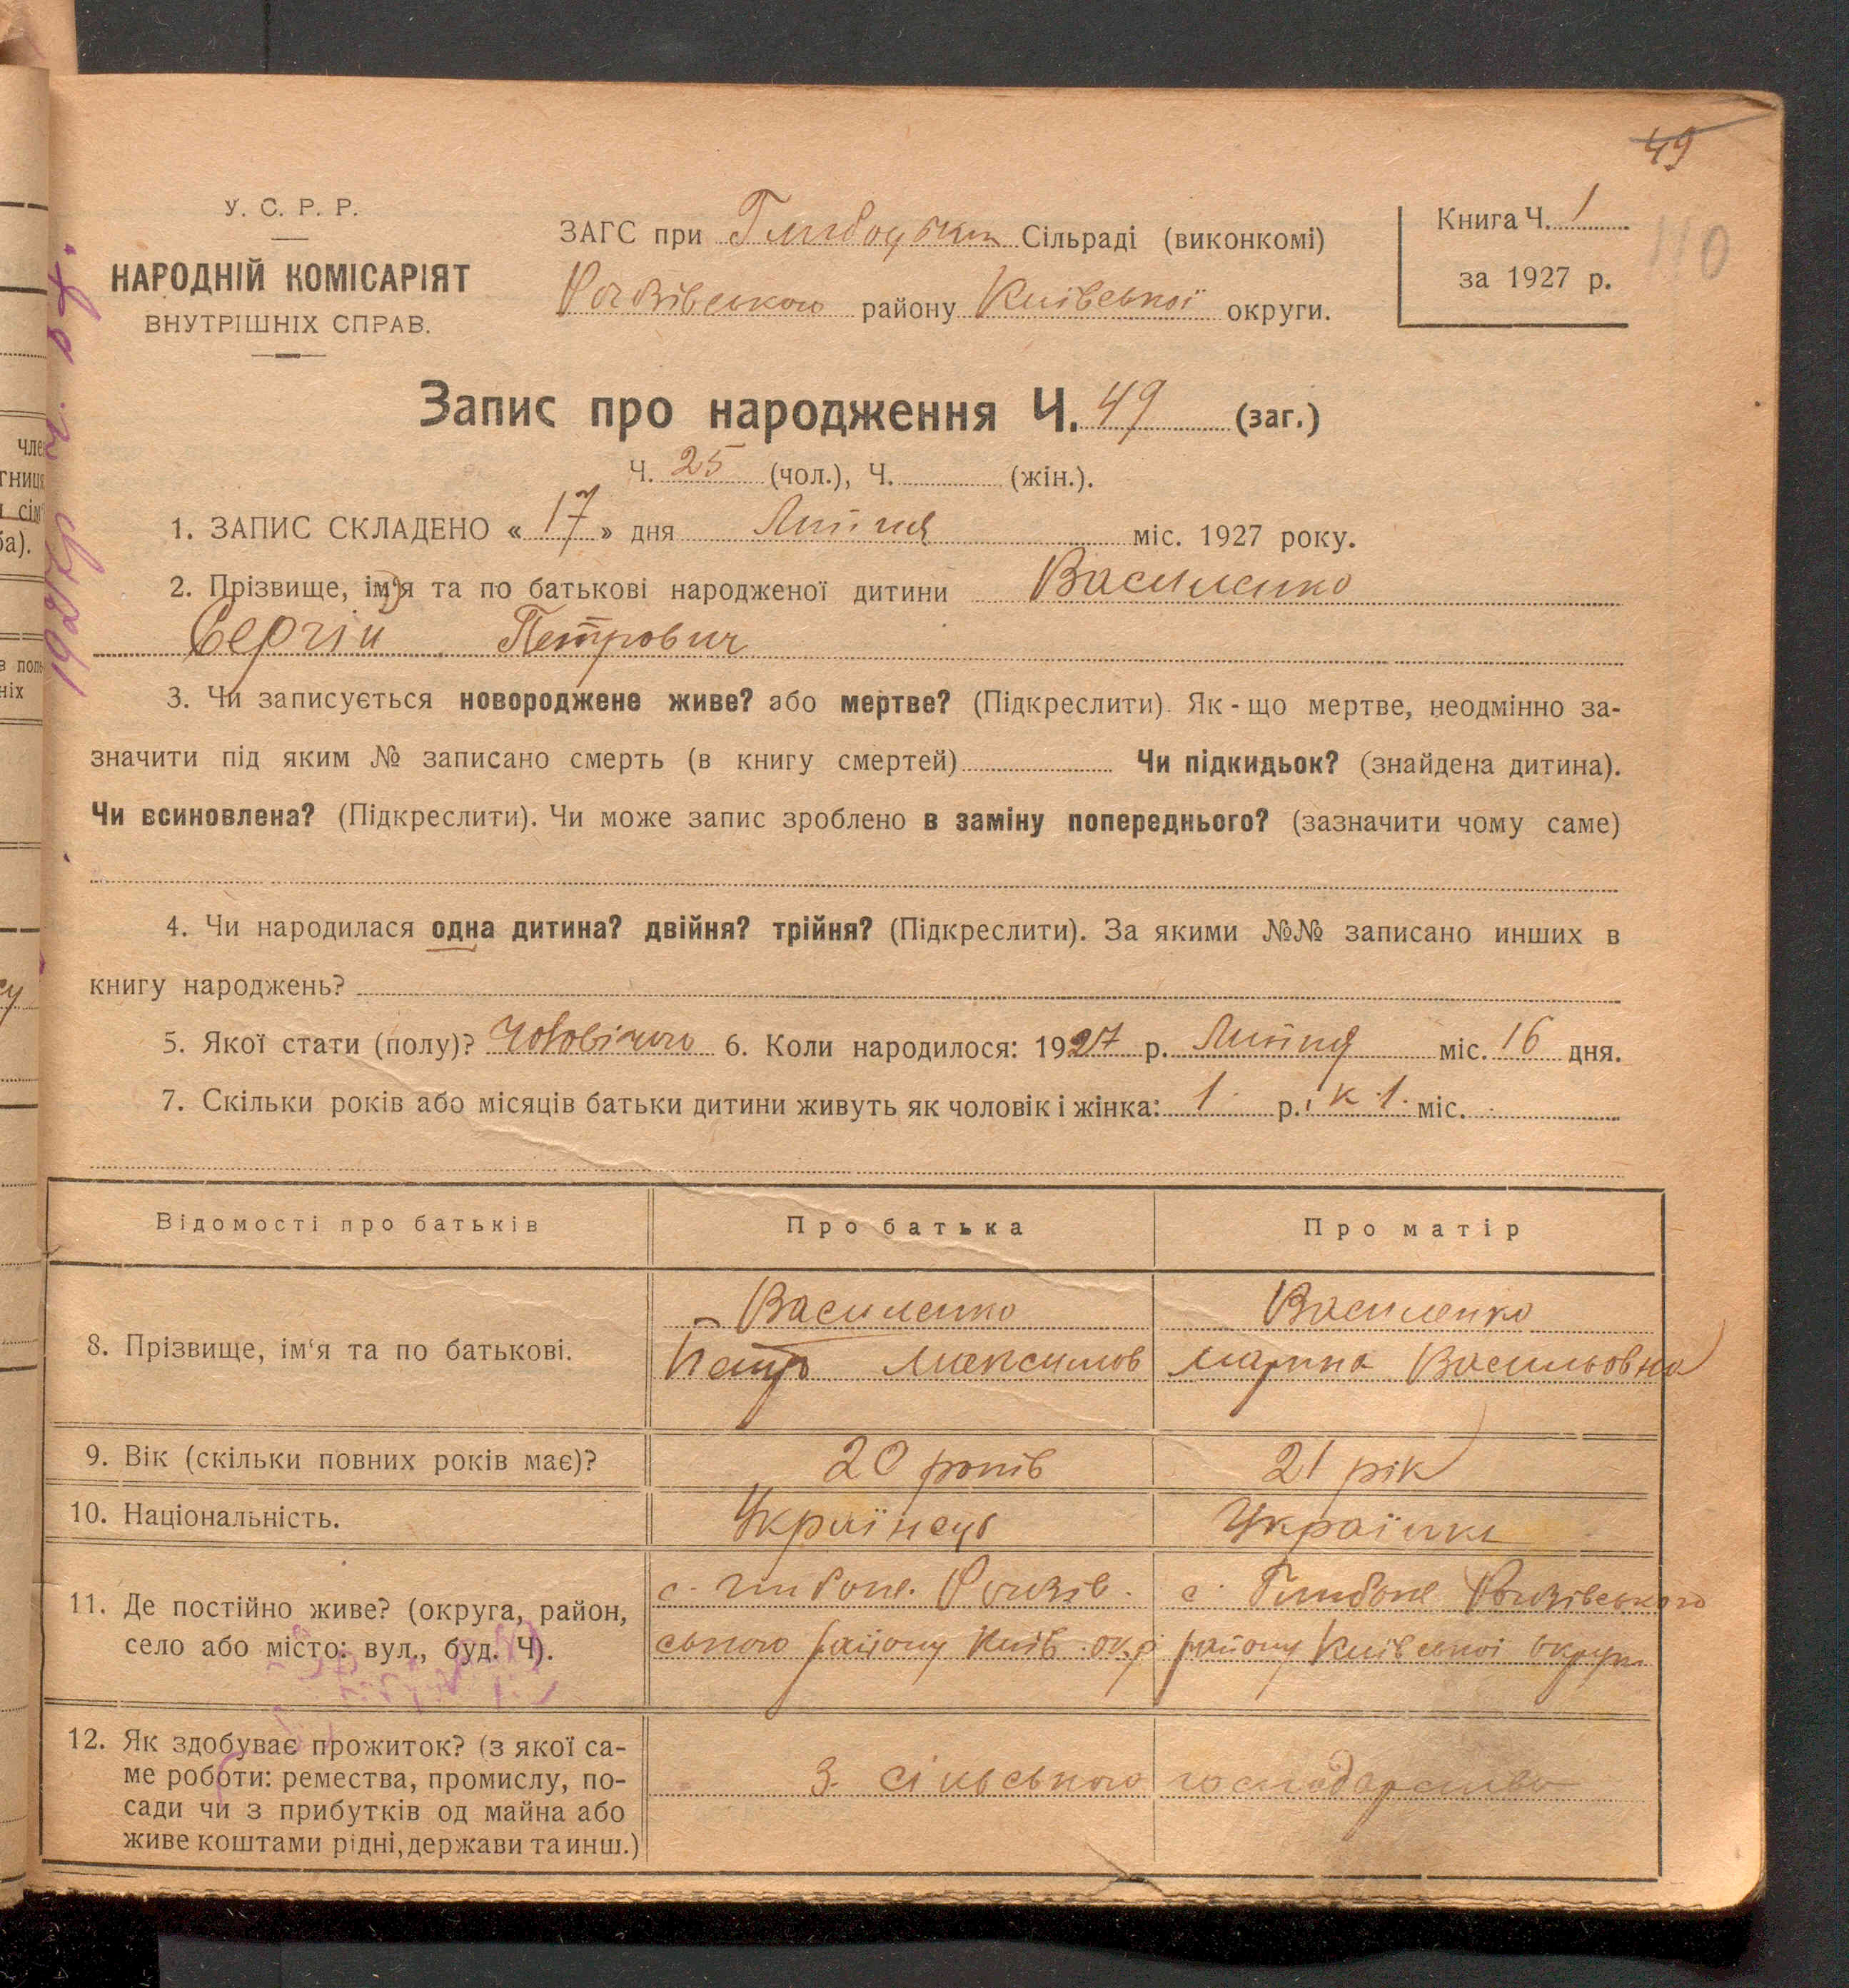 49
У. С. Р. Р.
НАРОДНІЙ КОМІСАРІЯТ
ВНУТРІШНІХ СПРАВ.
ЗАГС при Глибоцькій Сільраді (виконкомі)
району Київської округи.
Книга Ч. 1
за 1927 р.
110
Запис про народження Ч. 49 (заг.)
Ч. 25 (чол.), Ч. (жін.).
1. ЗАПИС СКЛАДЕНО « 17 » дня Липня міс. 1927 року.
2. Прізвище, ім'я та по батькові народженої дитини Василенко
Сергій Петрович
3. Чи записується новороджене живе? або мертве? (Підкреслити). Як-що мертве, неодмінно за-
значити під яким № записано смерть (в книгу смертей) Чи підкидьок? (знайдена дитина).
Чи всиновлена? (Підкреслити). Чи може запис зроблено в заміну попереднього? (зазначити чому саме)
4. Чи народилася одна дитина? двійня? трійня? (Підкреслити). За якими №№ записано инших в
книгу народжень?
5. Якої стати (полу)? Чоловічого 6. Коли народилося: 1927 р. Липня міс. 16 дня.
7. Скільки років або місяців батьки дитини живуть як чоловік і жінка: 1 р. к 1. міс.
Відомості про батьків Про батька Про матір
8. Прізвище, ім'я та по батькові.
Василенко Василенко
Петро Максимов Марина Васильовна
9. Вік (скільки повних років має)? 20 років 21 рік
10. Національність. Українець Українка
11. Де постійно живе? (округа, район,
село або місто: вул., буд. Ч).
с. Глибоке с. Глибоке
ського району Київ. окр. району Київської округи
12. Як здобуває прожиток? (з якої са-
ме роботи: ремества, промислу, по-
сади чи з прибутків од майна або
живе коштами рідні, держави та инш.)
З сільського господарства